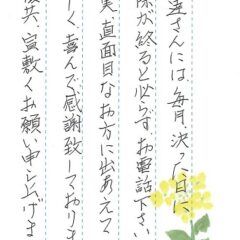 達さんには、毎月、決った日に
際が終ると必らず、お電話下さい
実、直面目なお方に出あえて
しく、喜んで感謝致しており
後共、宜敷くお願い申し上げま